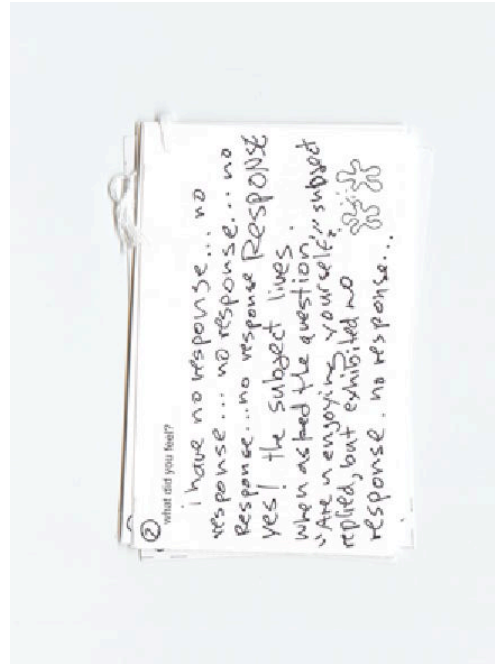 ② what did you feel?
i have no response... no
response... no response... no
Response... no response RESPONSE
yes! the subject lives.
When asked the question,
"Are u enjoying yourself?" subject
replied, but exhibited no
response. no response...